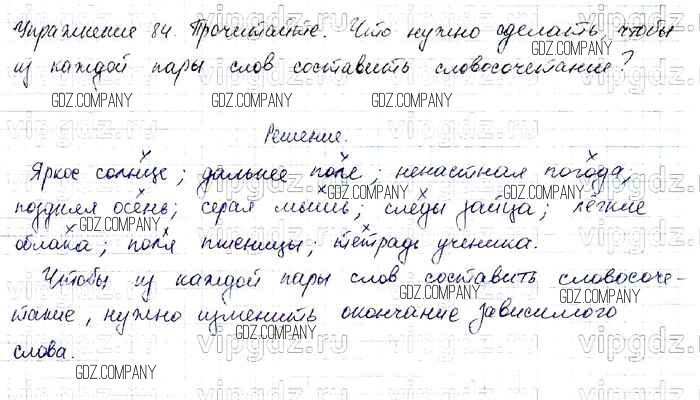 Упражнение 84. Прочитайте. Что нужно сделать, чтобы
из каждой пары слов составить словосочетание?
GDZ.COMPANY
GDZ.COMPANY GDZ.COMPANY GDZ.COMPANY
Решение.
Яркое солнце; дальнее поле; ненастная погода;
GDZ.COMPANY GDZ.COMPANY
поздняя осень; серая мышь; следы зайца; лёгкие
облака; поля пшеницы; тетрадь ученика.
GDZ.COMPANY
Чтобы из каждой пары слов составить словосоче-
GDZ.COMPANY
тание, нужно изменить окончание зависимого
GDZ.COMPANY
слова.
GDZ.COMPANY
vipgdz.ru